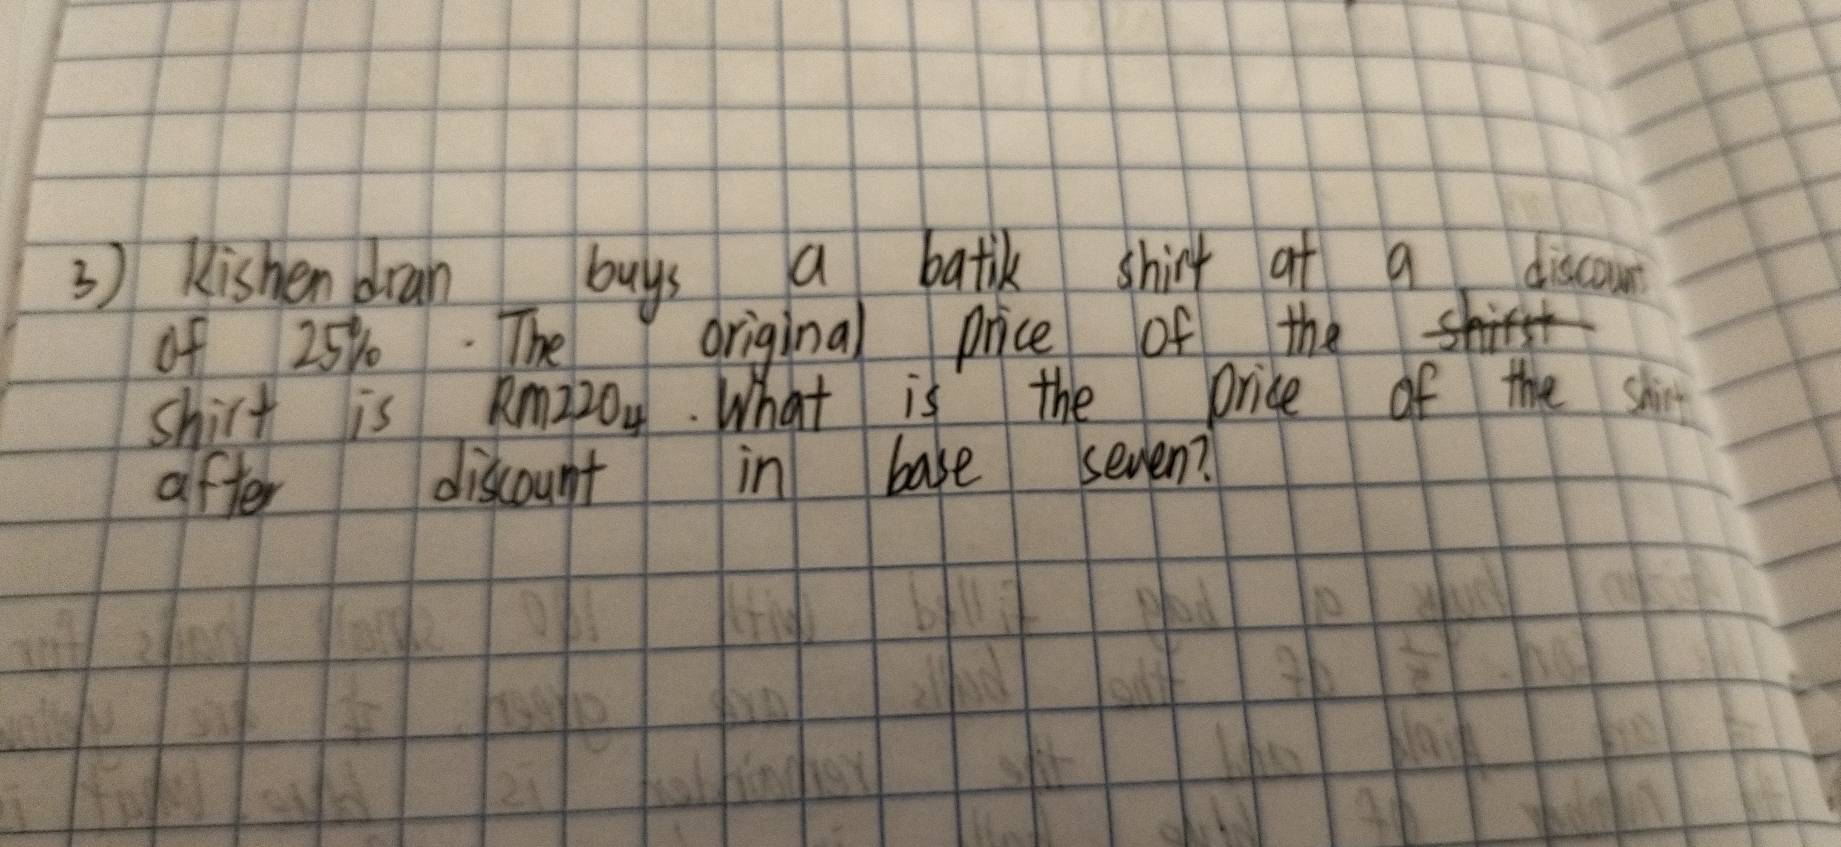 3) Kishendran buys a batik shirt at a discount
of 25%. The original price of the shirst
shirt is RM220₄. What is the price of the shirt
after discount in base seven?